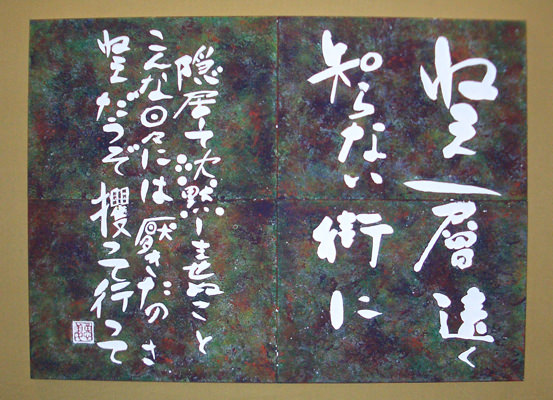 ねえ一層遠く
知らない街に
隠居て沈黙し こと
こんな日々には厭きたのさ
ねえだうぞ攫って行って